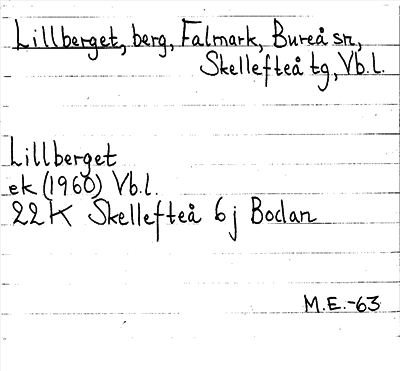 Lillberget, berg, Falmark, Bureå sn,
Skellefteå tg, Vb.l.
Lillberget
ek (1960) Vb.l.
22K Skellefteå 6j Bodan
M.E.-63